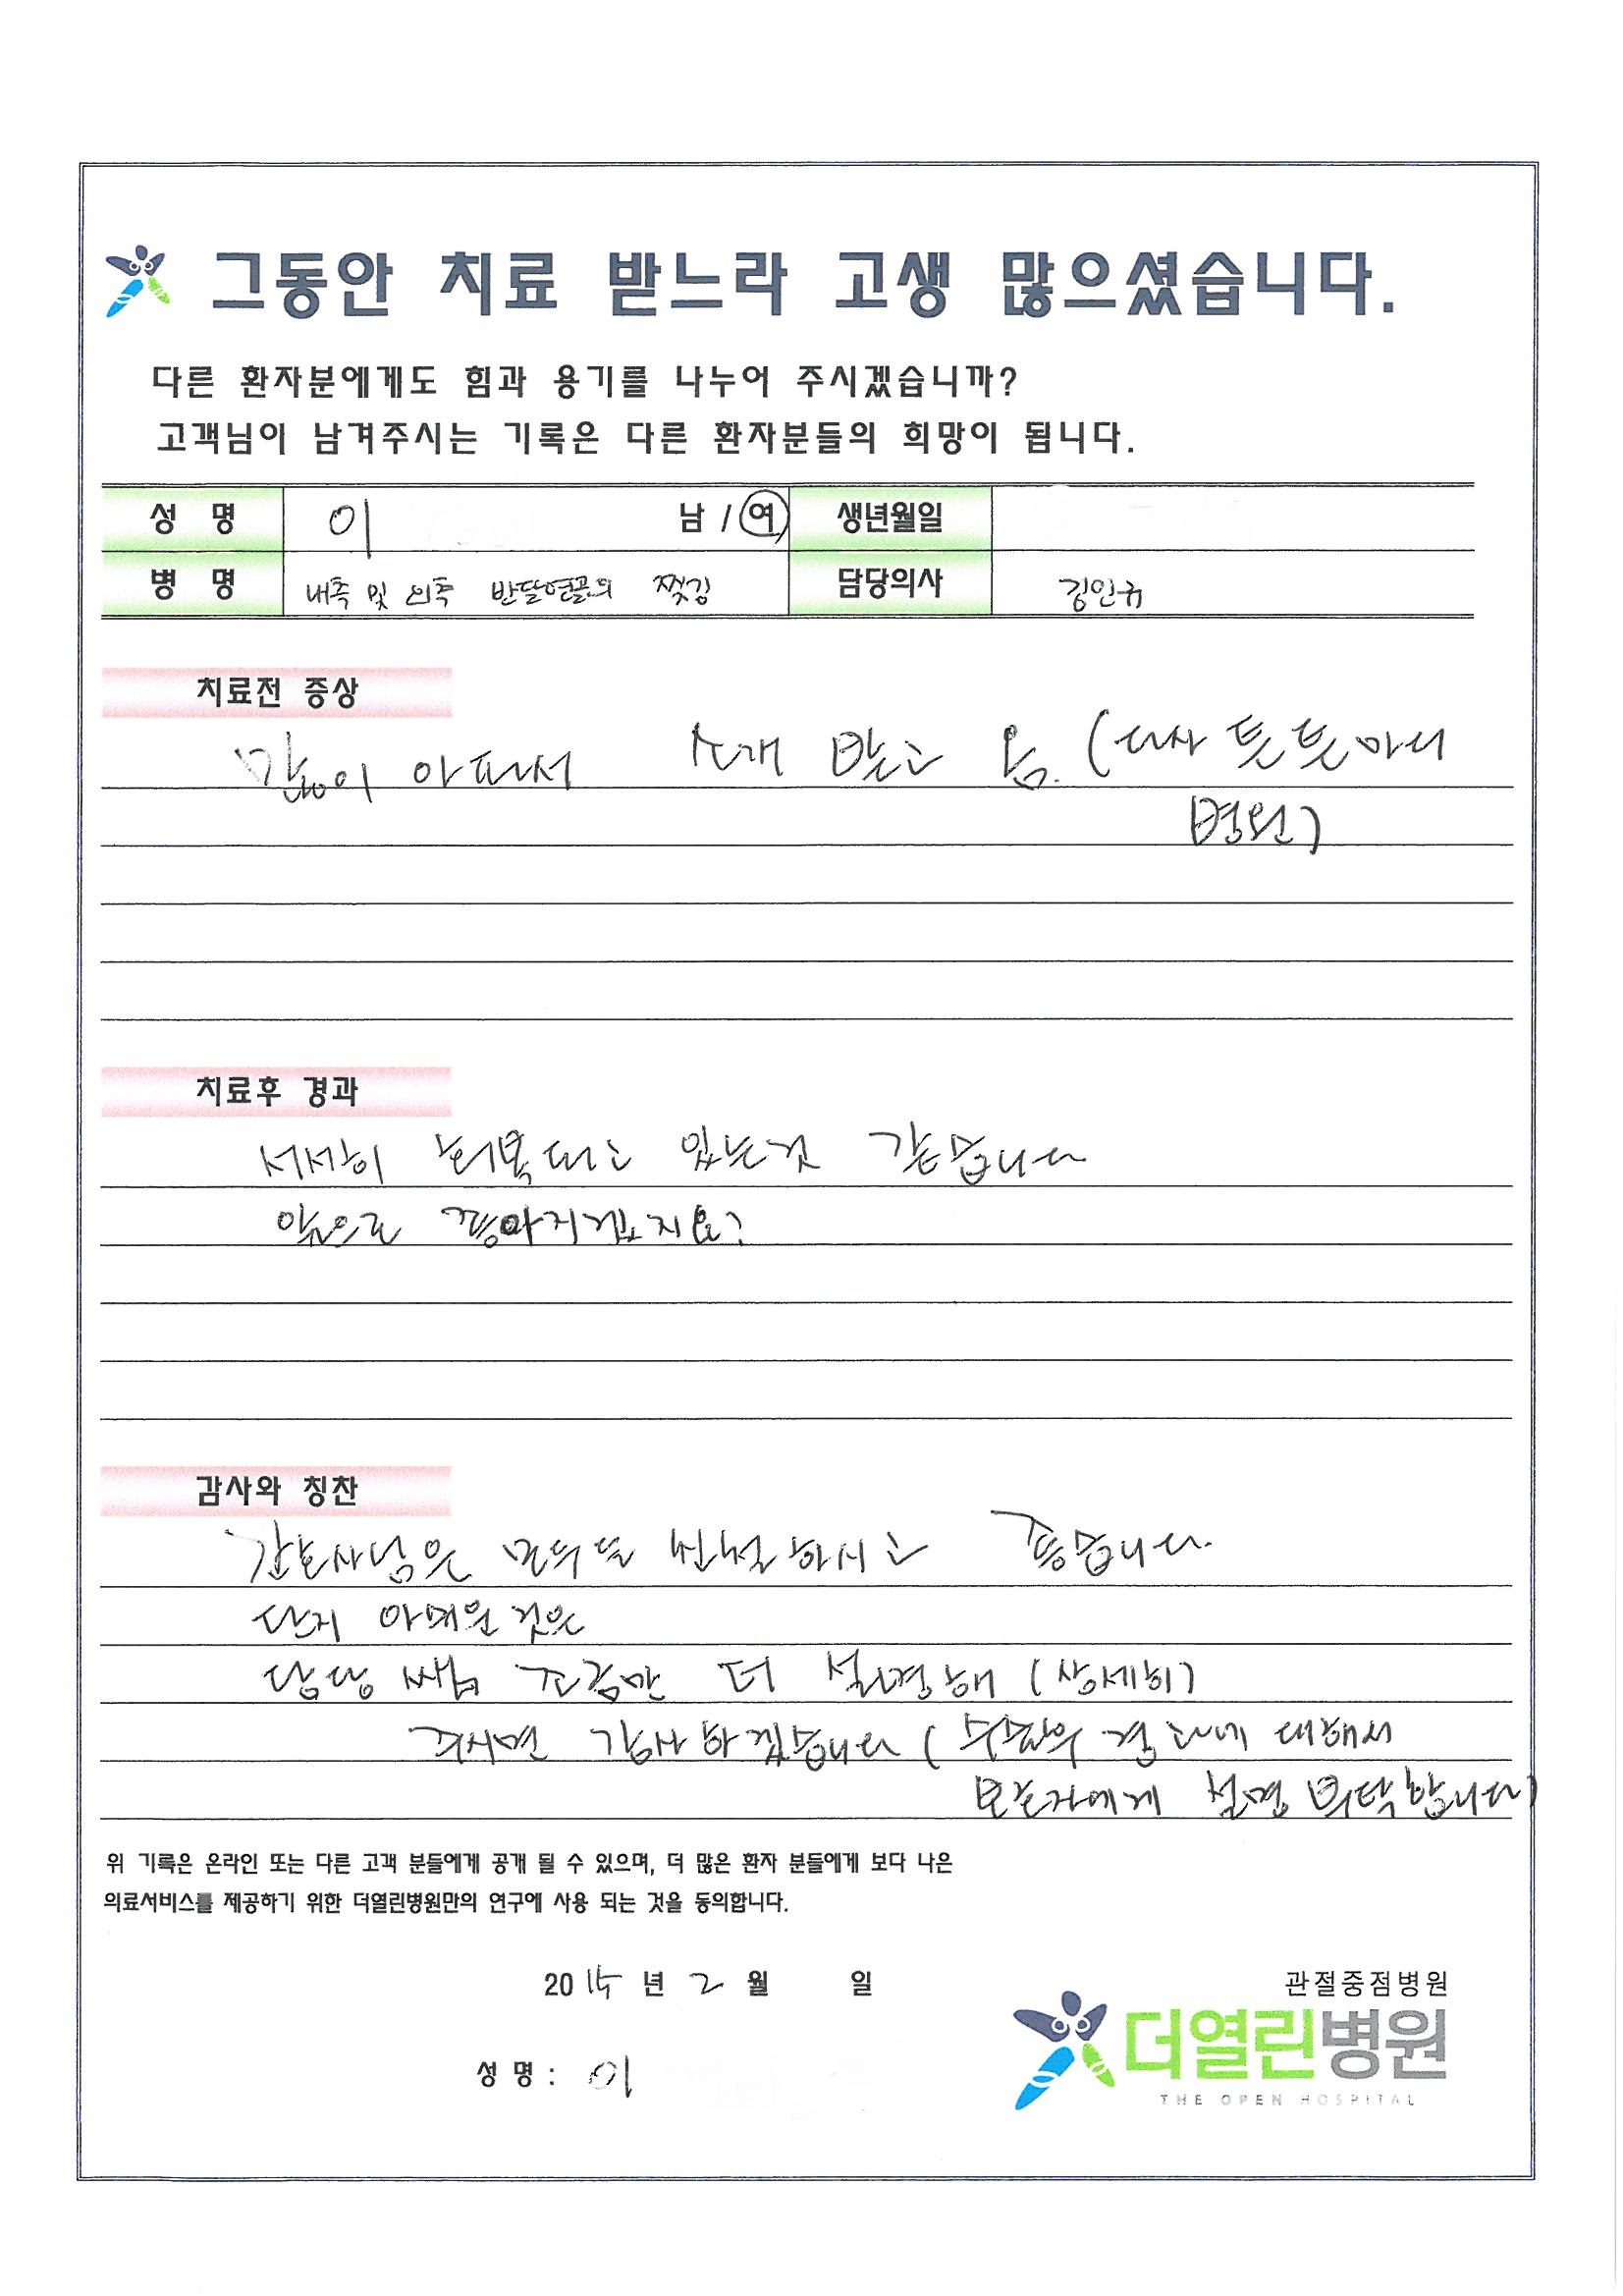 그동안 치료 받느라 고생 많으셨습니다.
다른 환자분에게도 힘과 용기를 나누어 주시겠습니까?
고객님이 남겨주시는 기록은 다른 환자분들의 희망이 됩니다.
성 명 이 남 / 여 생년월일
병 명 내측 및 외측 반달연골의 찢김 담당의사 김인규
치료전 증상
많이 아파서 소개 받고 옴. (다사 튼튼마디
병원)
치료후 경과
서서히 회복되고 있는것 같습니다
앞으로 좋아지겠지요?
감사와 칭찬
간호사님은 모두들 친절하시고 좋습니다.
단지 아쉬운 것은
담당 쌤님 조금만 더 설명해 (상세히)
주시면 감사하겠습니다 (수술후 결과에 대해서
보호자에게 설명 부탁합니다)
위 기록은 온라인 또는 다른 고객 분들에게 공개 될 수 있으며, 더 많은 환자 분들에게 보다 나은
의료서비스를 제공하기 위한 더열린병원만의 연구에 사용 되는 것을 동의합니다.
2015 년 2 월 일
관절중점병원
더열린병원
THE OPEN HOSPITAL
성 명 : 이